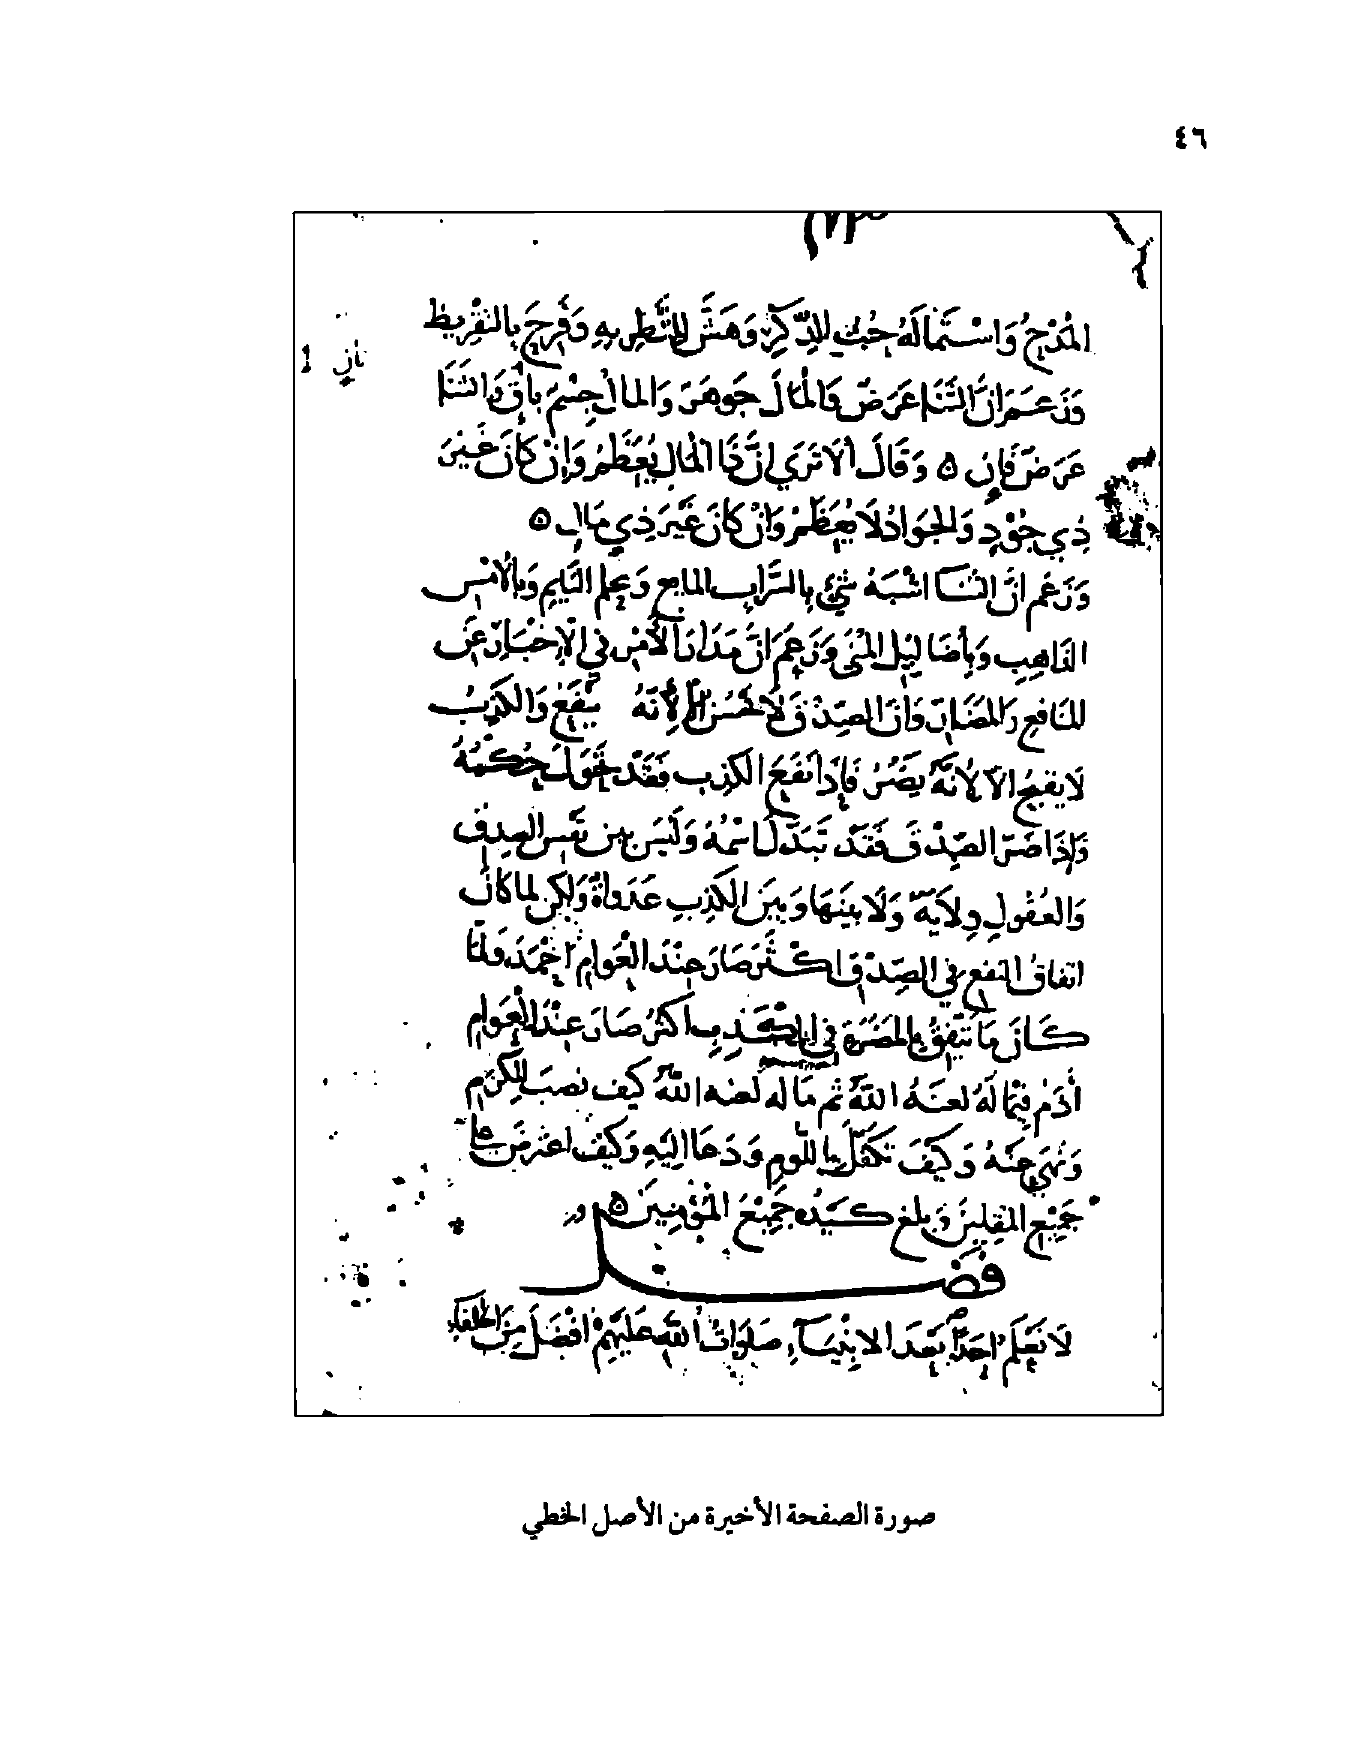 ٤٦
المَدْحُ وَاسْتَمَالَهُ حُبُّ للذِّكْرِ وَهَشَّ لِلتَّأْطِيرِ بِهِ وَفُرِحَ بِالتقْرِيظ
وَزَعَمَ انَّ الثَّنَا عَرَضٌ وَالمَالَ جَوهَرٌ وَالمالُ جِسْمٌ بَاقٍ وَالثنَا
عَرَضٌ فَانٍ ٥ وَقَالَ ألَا تَرَي انَّ ذَا المَالِ يُعَظَّمُ وَإِنْ كَانَ غَيْرَ
ذِي جُوْدٍ وَالجَوَادُ لَا يُعَظَّمُ وَانْ كَانَ غَيْرَ ذِي مَالٍ ٥
وَزَعَم انَّ الثنَا اشْبَهُ شَيْءٍ بِالسَّرَابِ اللامع وَحلم النَّايم وَبالأمْس
الذاهِب وَ المُنَى وَزَعَمَ انَّ مَدَارَ الأمْرِ فِي الإِخْبَارِ عَن
المنَافِعِ وَالمضَارّ وَانَّ الصِّدْقَ لَا يَحْسُنُ إلَّا لِأَنَّهُ يَنْفَعُ وَالكَذِبُ
لَا يقبحُ الَّا لِأَنَّهُ يَضُرُّ فَإِذَا نَفَعَ الكَذِب فَقَدْ تَحَوَّلَ حُكْمُهُ
وَإِذَا ضَرَّ الصِّدْقَ فَقَدْ تَبَدَّلَ اسْمُهُ وَلَيْسَ بين نَفْسِ الصِدْقِ
وَالعُقُولِ وِلَايَةٌ وَلَا بينَهَا وَبَيْنَ الكَذِبِ عَدَاوَةٌ وَلَكِن لما كَانَ
اتفاقُ النفعِ فِي الصِّدْقِ اكْثَرَ صَارَ عِنْدَ العَوَامِ احْمَدَ وَلمَّا
كَانَ مَا تَتَّفِقُ بِهِ المَضَرّة فِي الكَذِبِ اكثرُ صَارَ عِنْدَ العَوَامِ
أذَمَّ فِمَا لَهُ لعنَهُ اللهُ ثم مَا له لعنه اللهُ كَيف نصبَ لِلكَرَمِ
وَنهَى عَنْهُ وَكَيْفَ تكَفَّلَ باللُّومِ وَدَعَا اليْهِ وَكَيْفَ اعترَضَ
جَمِيْعَ المقلِينَ وَبلغ كَيْدُه جَمِيْعَ المُؤْمِنِينَ ٥
فَصْل
لَا نَعْلَم احَدًا بَعْدَ الانبِيَاءِ صَلوَاتُ اللهِ عَليْهِمْ افْضَلَ مِنَ الخلفَاءِ
صورة الصفحة الأخيرة من الأصل الخطي